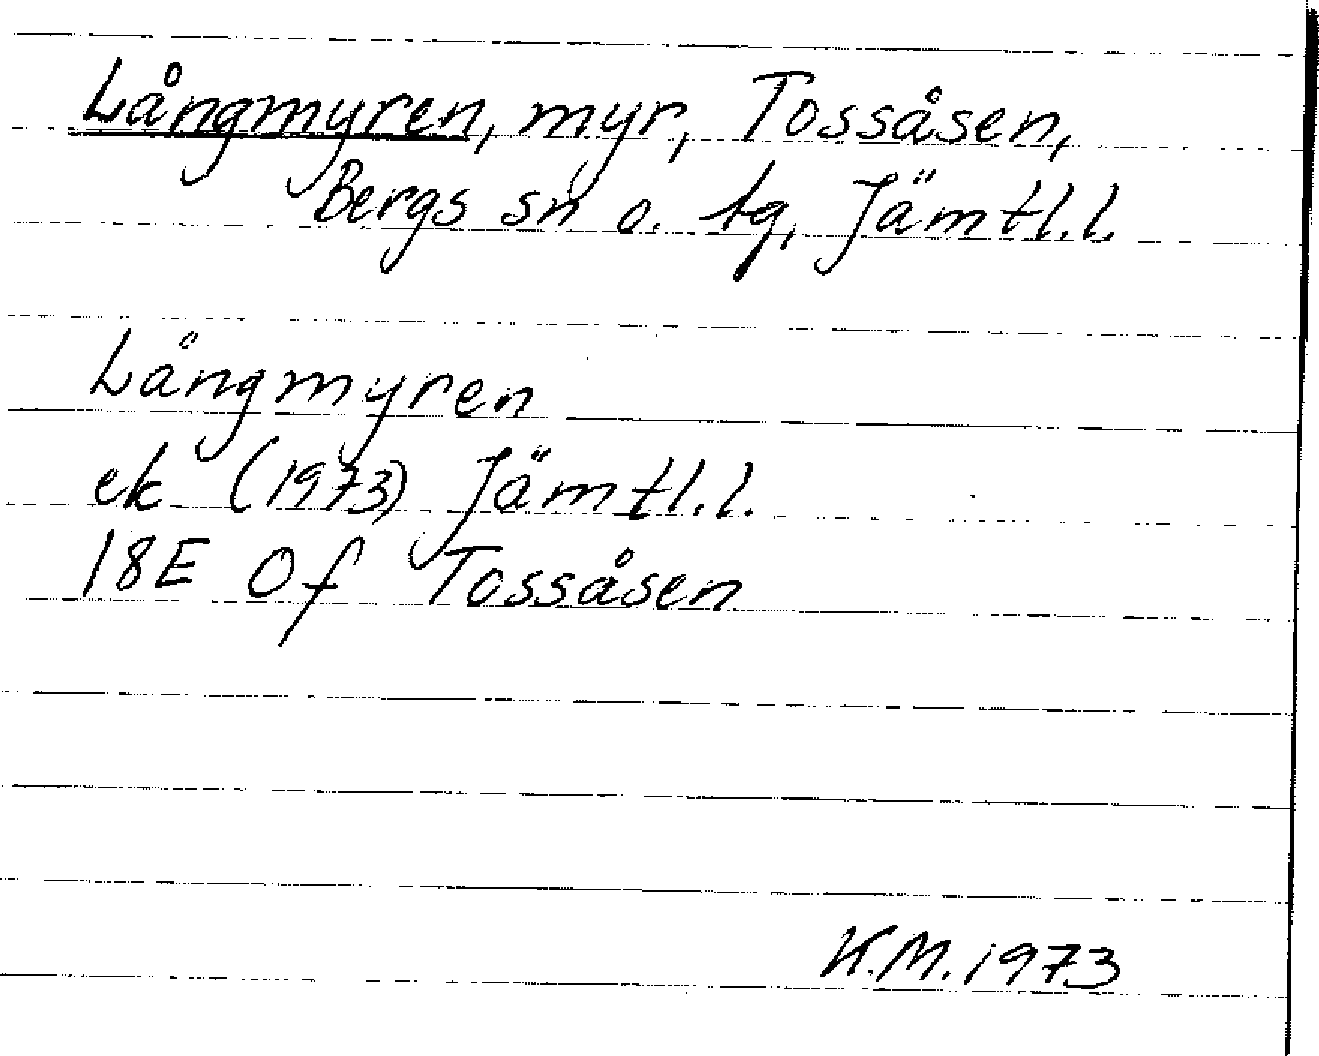 Långmyren, myr, Tossåsen,
Bergs sn o. tg, Jämtl.l.
Långmyren
ek (1973) Jämtl.l.
18E Of Tossåsen
K.M. 1973